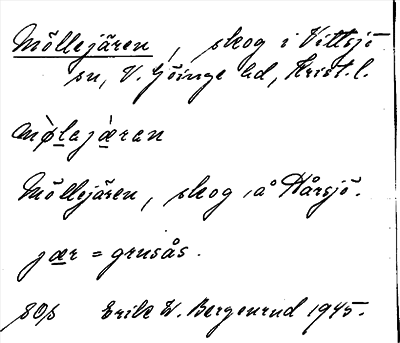 Möllejären, skog i Vittsjö
sn, V. Göinge hd, Krist. l.
mø̀lajæ̀ran
Möllejären, skog å Hårsjö.
jær = grusås.
Erik W. Bergenrud 1945.